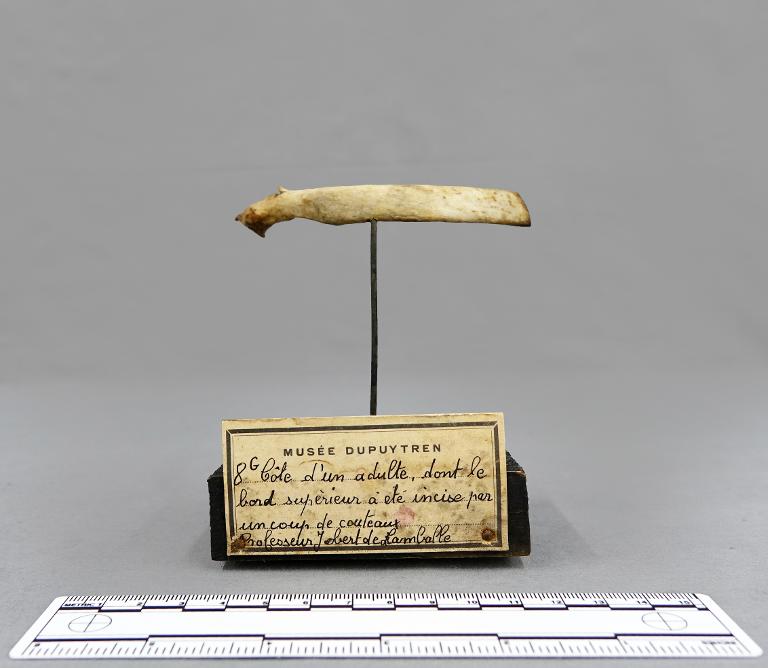 MUSÉE DUPUYTREN
8G Côte d'un adulte, dont le
bord supérieur a été incisé par
un coup de couteaux
Professeur Jobert de Lamballe
METRIC 1 2 3 4 5 6 7 8 9 10 11 12 13 14 15